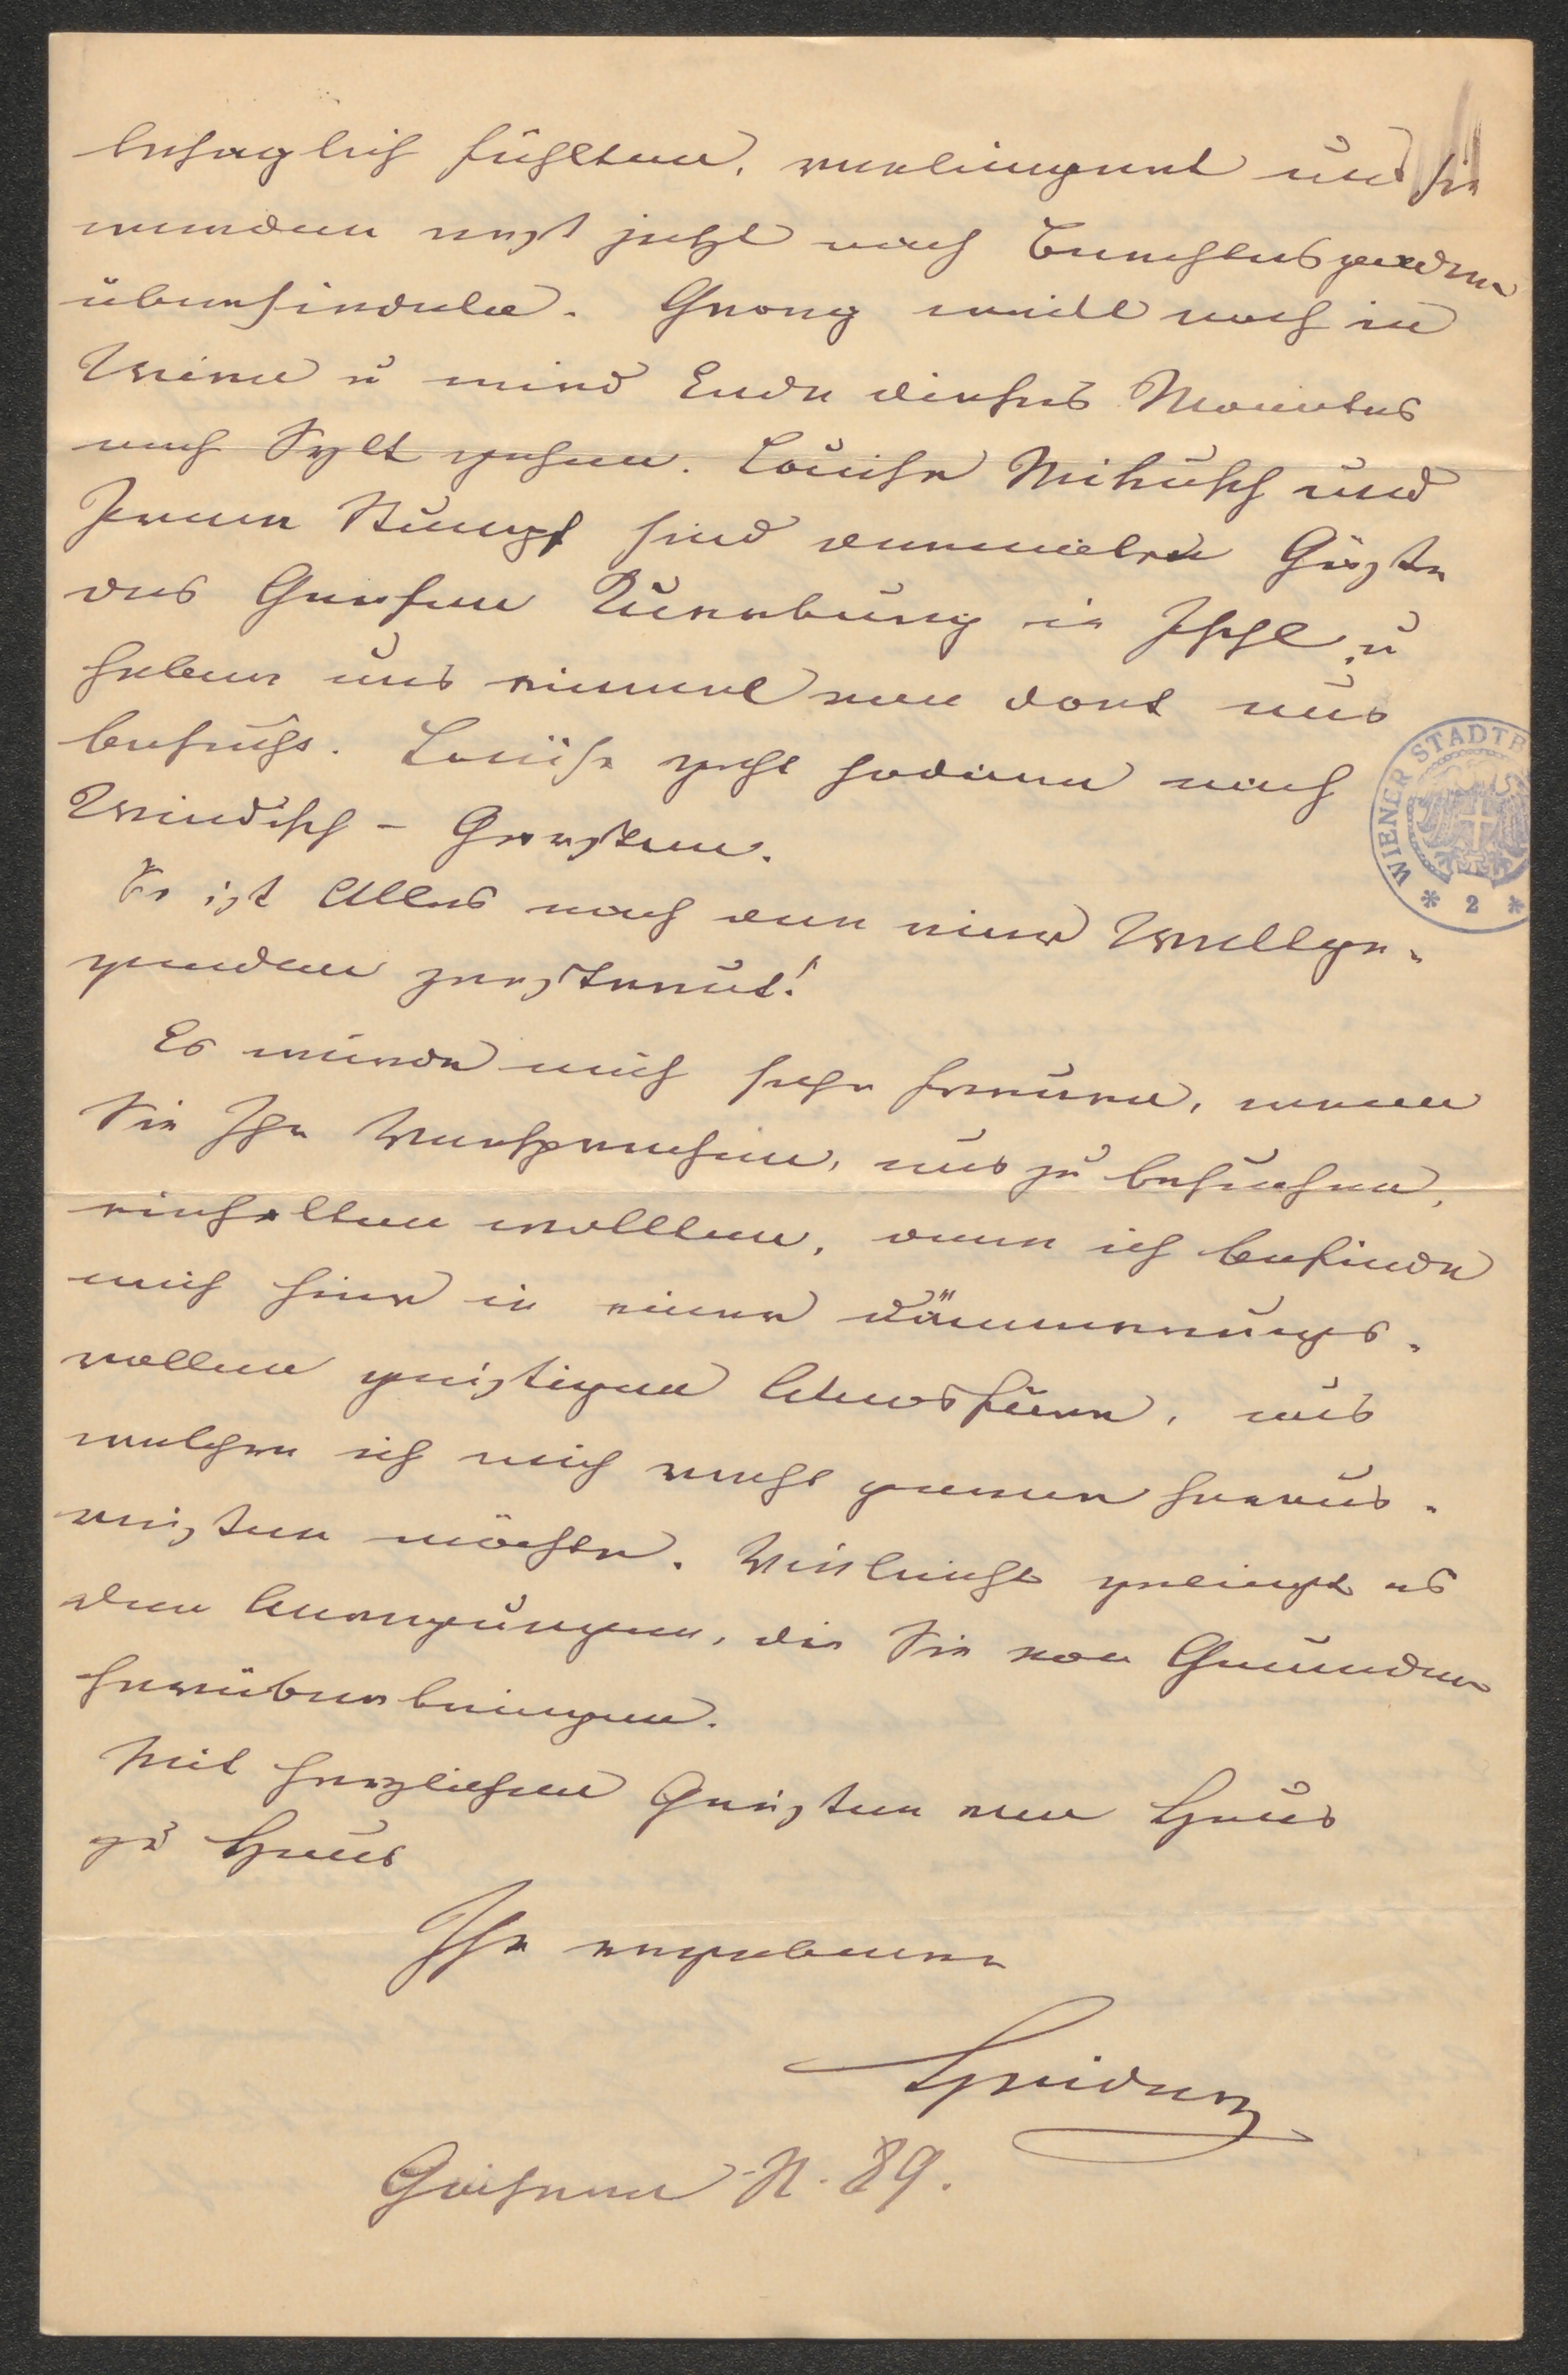 behaglich fühlten, verlängert und sie
werden erst jetzt nach Berchtesgaden
übersiedeln. Georg weilt noch in
Wien u wird Ende dieses Monates
nach Sylt gehen. Louise Mikusch und
Jenny Stumpf sind dermalen Gäste
des Grafen Dürnburg in Ischl u
haben uns einmal von dort aus
besucht. Louise geht sodann nach
Windisch-Garsten.
So ist Alles nach den vier Weltge-
genden zerstreut!
Es würde mich sehr freuen, wenn
Sie Ihr Versprechen, uns zu besuchen,
einhalten wollten, denn ich befinde
mich hier in einer dämmerungs-
vollen geistigen Atmosfäre, aus
welcher ich mich recht gerne heraus-
reißen möchte. Vielleicht gelingt es
den Anregungen, die Sie von Gmunden
herüberbringen.
Mit herzlichen Grüßen von Haus
zu Haus
Ihr ergebener
Goisern N. 89.
WIENER STADTB
* 2 *